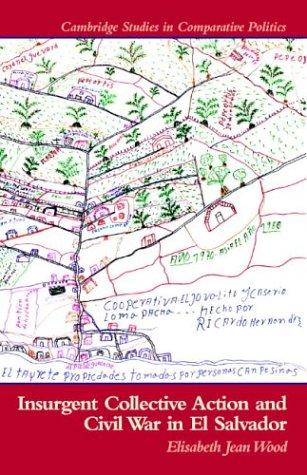 Cambridge Studies in Comparative Politics
AÑO 1970. ASIA EL AÑO 1980
COOPERATIVA EL JOVALITO Y CASERIO
LOMA PACHA... HECHO POR
RICARDO HERNANDEZ
EL TAYRETE PROPIEDADES TOMADOS POR PERSONAS CANPESINAS
Insurgent Collective Action and
Civil War in El Salvador
Elisabeth Jean Wood